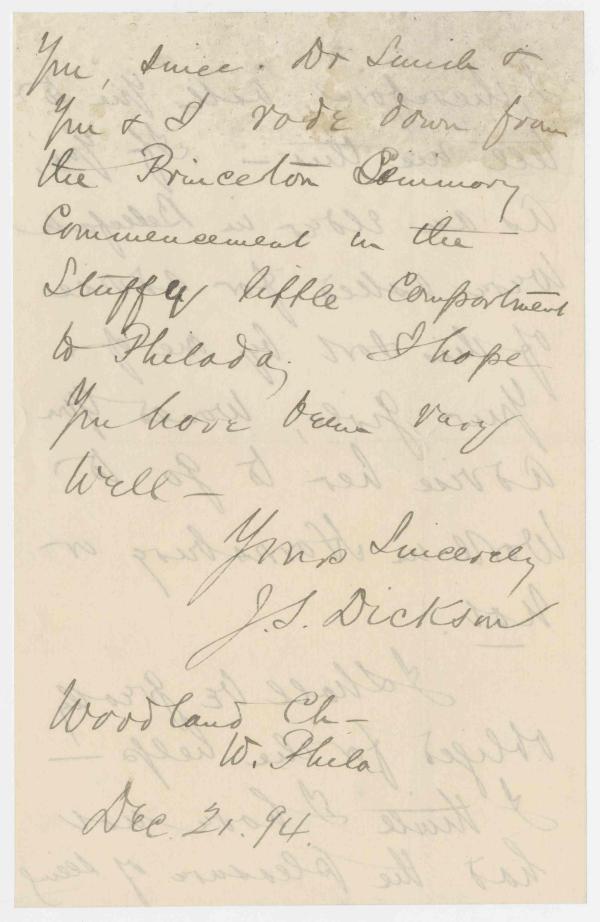 You, since. Dr Smith &
You & I rode down from
the Princeton Seminary
Commencement in the
Stuffy little Compartment
to Philada, I hope
You have been very
Well —
Yours Sincerely
J. S. Dickson
Woodland Ch —
W. Phila
Dec. 21. 94.